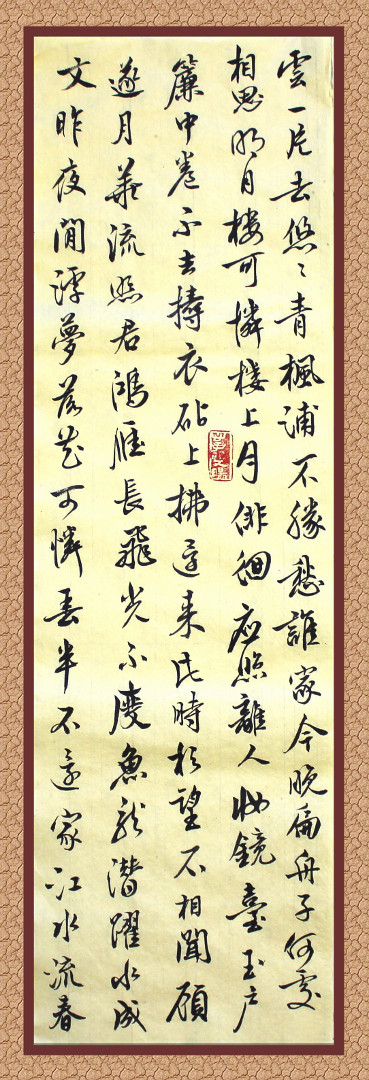 雲一片去悠〻青楓浦不勝愁誰家今晚扁舟子何處
相思明月樓可憐樓上月俳徊應照離人妝鏡臺玉户
簾中卷不去擣衣砧上拂還来此時相望不相聞願
逐月華流照君鴻雁長飛光不度魚龍潛躍水成
文昨夜閒潭夢落花可憐春半不還家江水流春